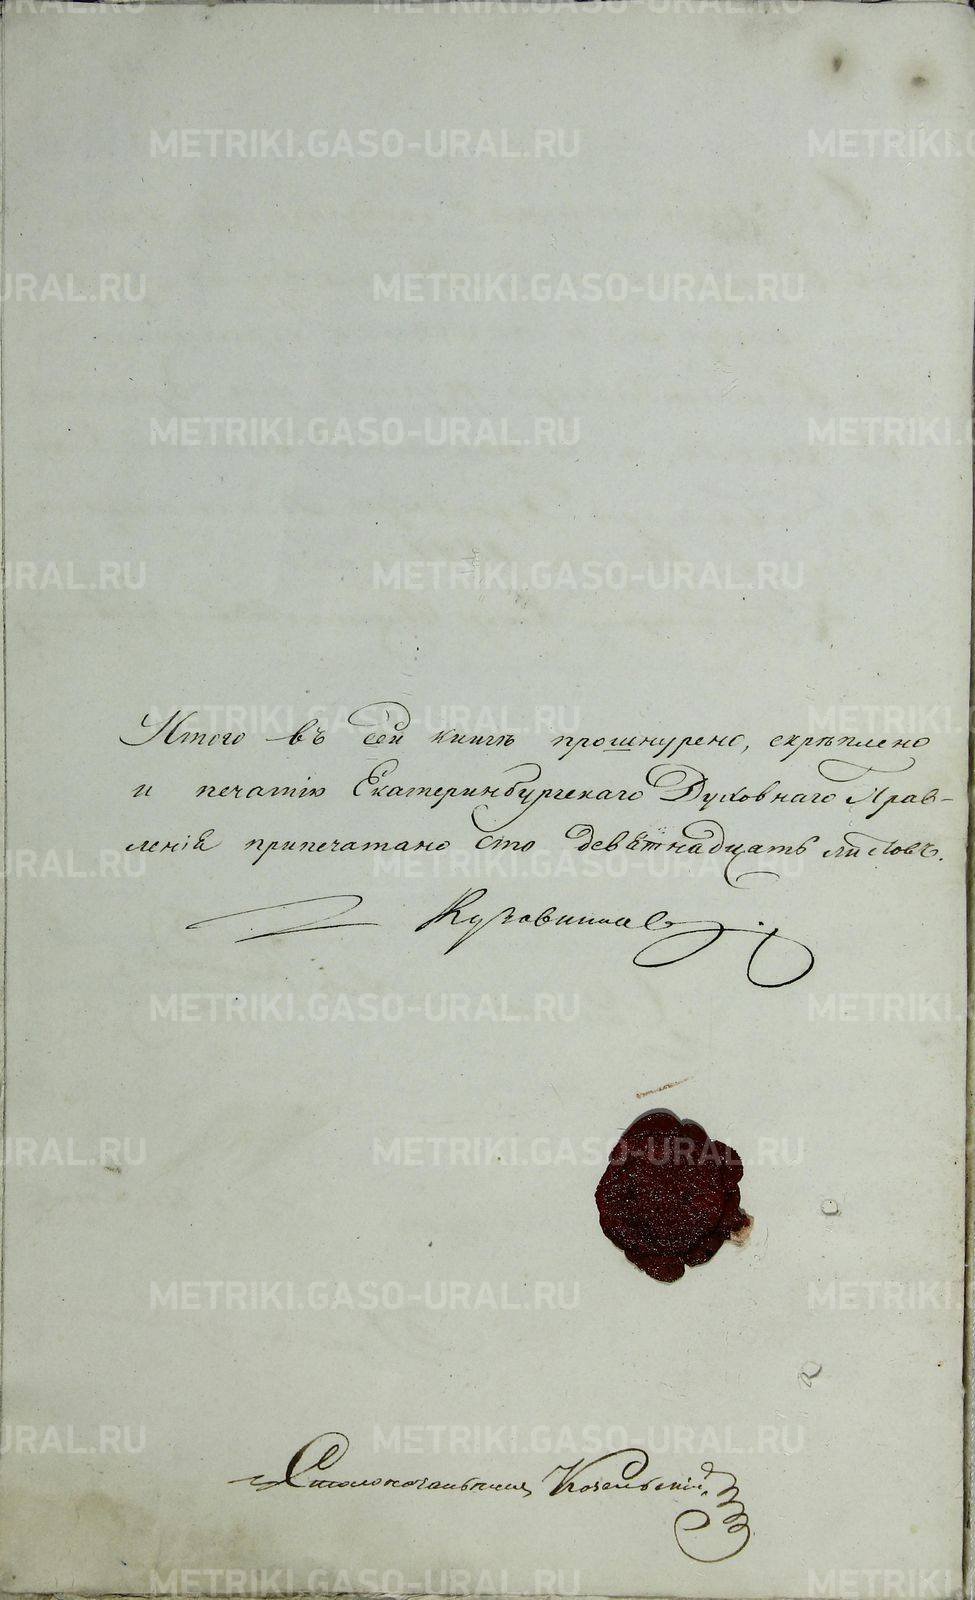 Итого въ сей книгѣ прошнурено, скрѣплено
и печатію Екатеринбургскаго Духовнаго Прав-
ленія припечатано сто девятнадцать листовъ.
Столоначальникъ Козельскій
METRIKI.GASO-URAL.RU